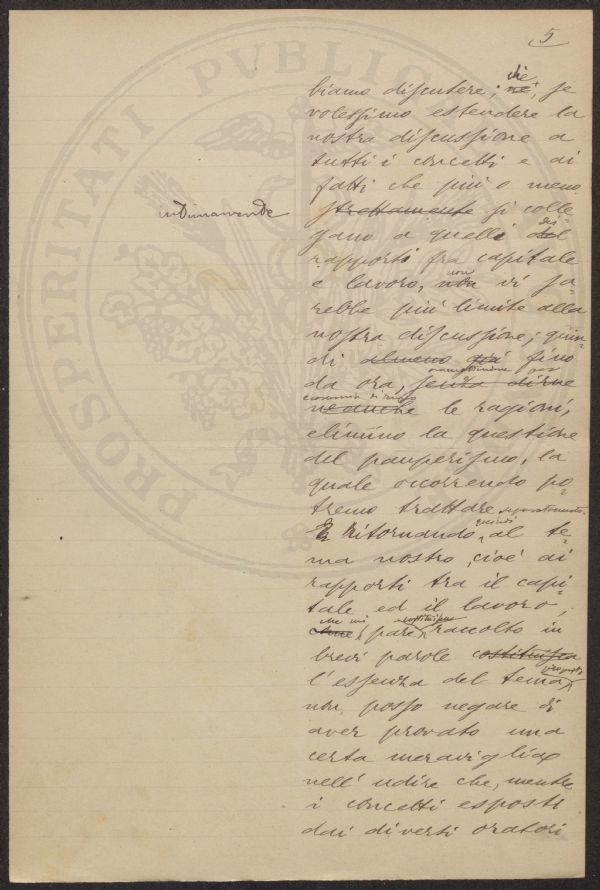 5
PROSPERITATI PUBLICAE
che
biamo discutere; né, se
volessimo estendere la
nostra discussione a
tutti i concetti e ai
fatti che più o meno
strettamente si colle
gano a quelli del
dei
rapporti fra capitale
e lavoro, non vi sa-
non
rebbe più limite alla
nostra discussione; quin-
di almeno già fino
da ora, senza dirne
neanche le ragioni,
elimino la questione
del pauperismo, la
quale occorrendo po-
tremo trattare separatamente.
Ritornando, al te-
quindi
ma nostro, cioè ai
rapporti tra il capi-
tale ed il lavoro,
che mi costituisce
pare, raccolto in
brevi parole costituisca
l'essenza del tema,
non posso negare di
aver provato una
certa meraviglia
nell'udire che, mentre
i concetti esposti
dai diversi oratori